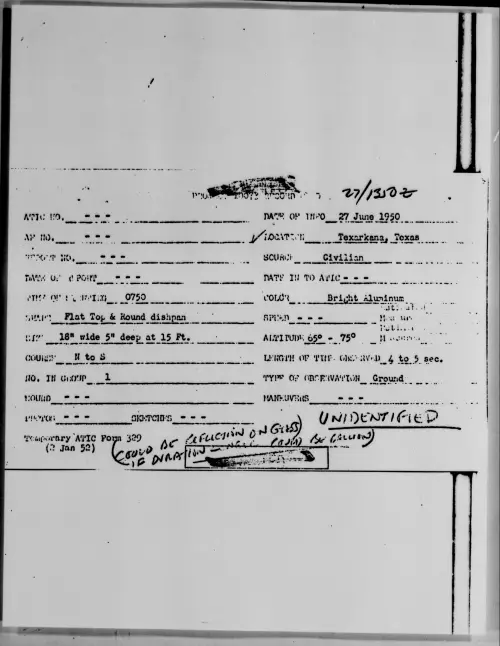 27/1350Z
ATIC NO. - - - DATE OF INFO 27 June 1950
AF NO. - - - ✓ LOCATION Texarkana, Texas
REPORT NO. - - - SOURCE Civilian
DATE OF REPORT - - - DATE IN TO ATIC - - -
TIME OF SIGHTING 0750 COLOR Bright Aluminum
SHAPE Flat Top & Round dishpan SPEED - - -
SIZE 18" wide 5" deep at 15 Ft. ALTITUDE 65° - 75°
COURSE N to S LENGTH OF TIME OBSERVED 4 to 5 sec.
NO. IN GROUP 1 TYPE OF OBSERVATION Ground
SOUND - - - MANEUVERS - - -
PHOTOS - - - SKETCHES - - - UNIDENTIFIED
Temporary ATIC Form 329
(2 Jan 52)
(COULD BE REFLECTION ON GLASS)
IF DURATION COULD BE BALLOON)